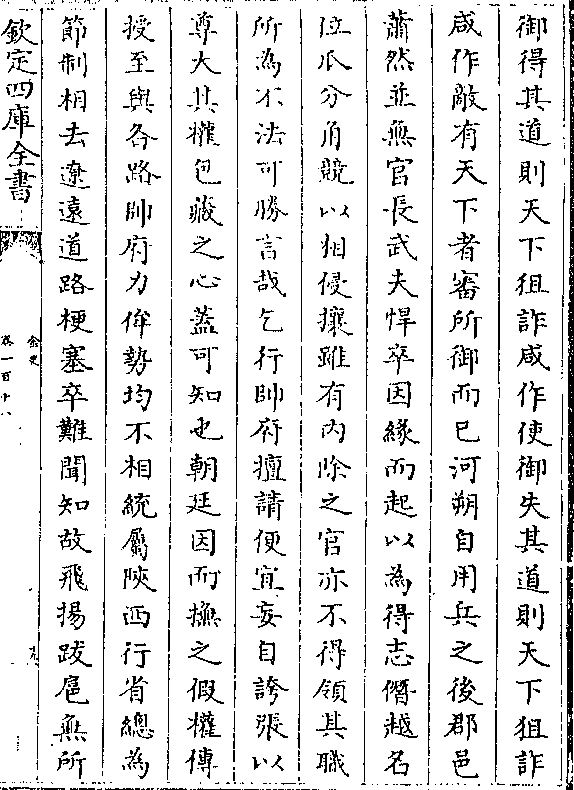 御得其道則天下狙詐咸作使御失其道則天下狙詐
咸作敵有天下者審所御而已河朔自用兵之後郡邑
蕭然並無官長武夫悍卒因緣而起以為得志僭越名
位瓜分角競以相侵攘雖有內除之官亦不得領其職
所為不法可勝言哉乞行帥府擅請便宜妄自誇張以
尊大其權包藏之心蓋可知也朝廷因而撫之假權傳
授至與各路帥府力侔勢均不相統屬陝西行省總為
節制相去遼遠道路梗塞卒難聞知故飛揚跋扈無所
欽定四庫全書
金史
卷一百十八
九